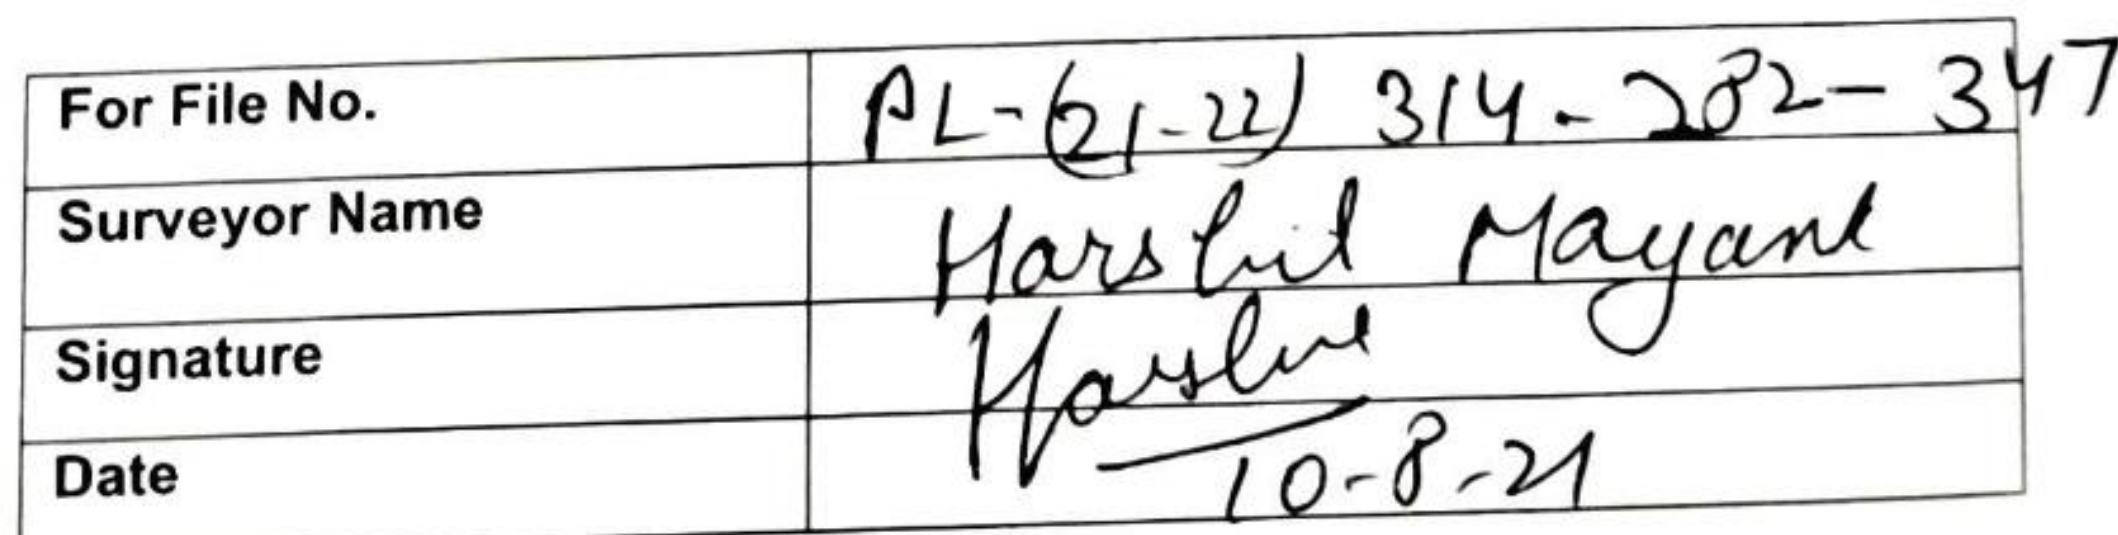 For File No. PL-(21-22) 314-282-347
Surveyor Name Harshit Mayank
Signature Harshit
Date 10-8-21